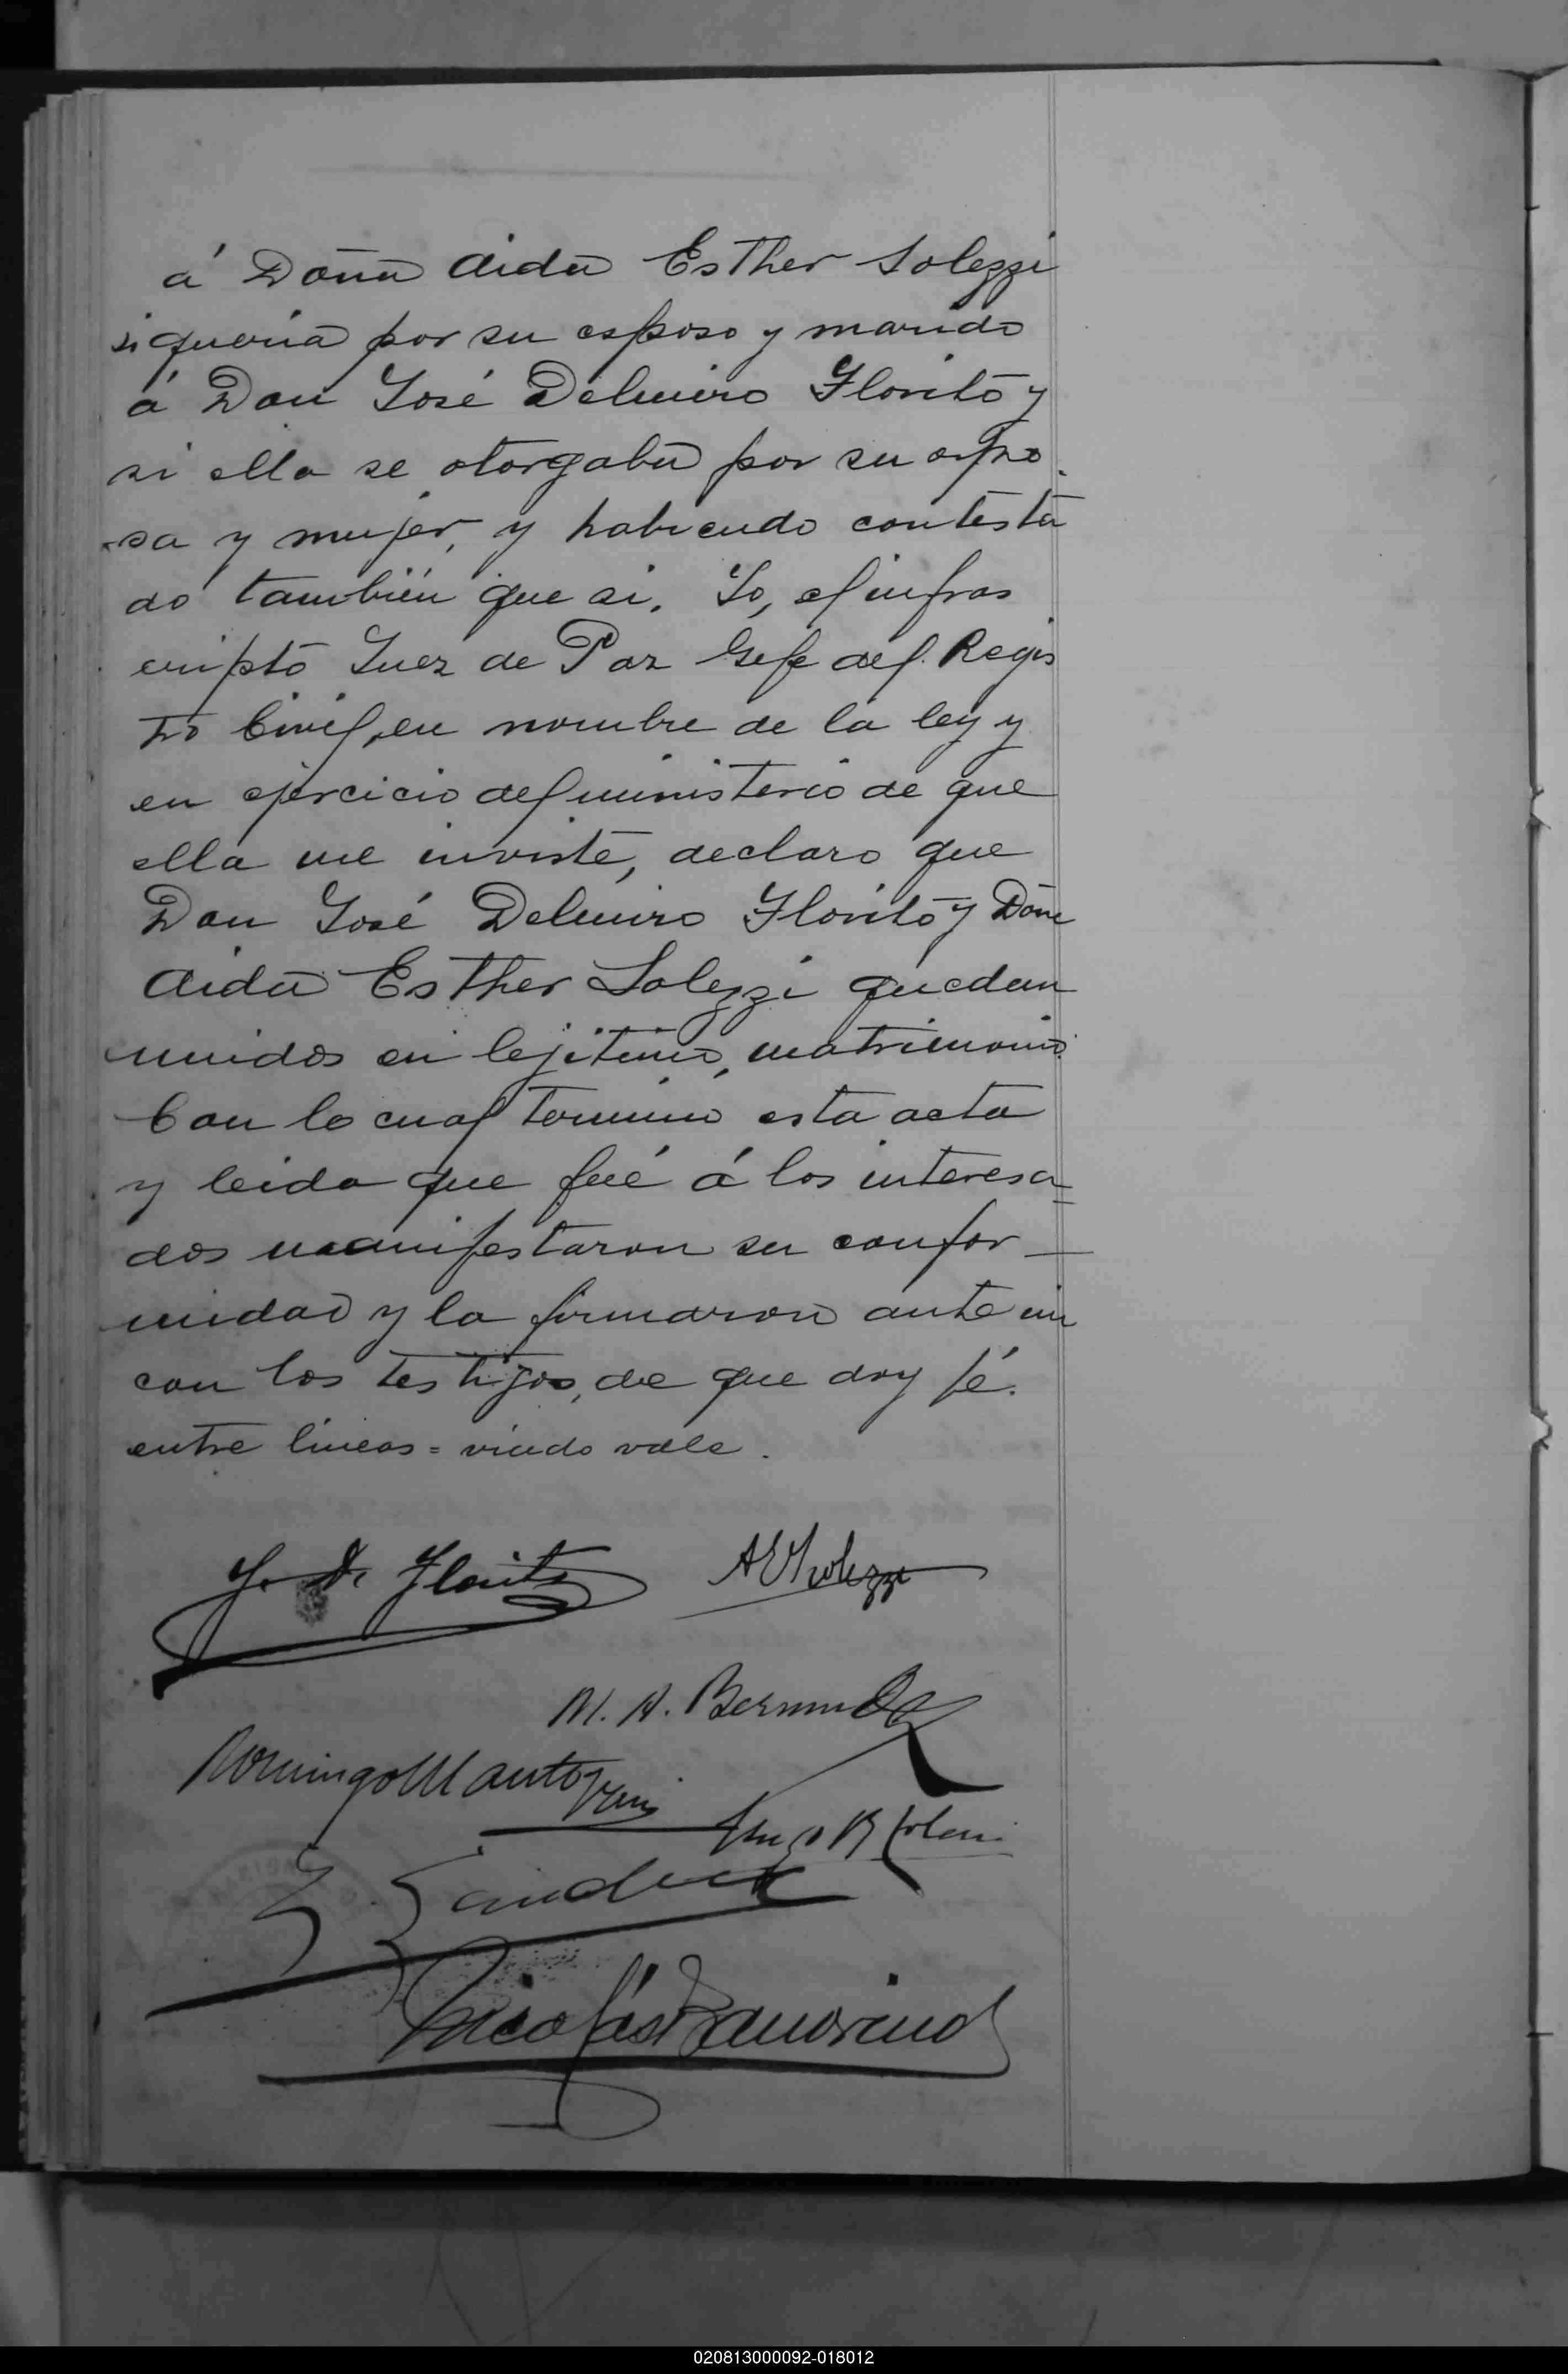 á Doña Aida Esther Solezzi
si queria por su esposo y marido
á Don José Delmiro Florito y
si ella se otorgaba por su espo
sa y mujer, y habiendo contesta
do también que si. Yo, el infras
cripto Juez de Paz Gefe del Regis
tro Civil, en nombre de la ley y
en ejercicio del ministerio de que
ella me inviste, declaro que
Don José Delmiro Florito y Doña
Aida Esther Solezzi quedan
unidos en lejitimo matrimonio.
Con lo cual terminó esta acta
y leida que fué á los interesa=
dos manifestaron su confor—
midad y la firmaron ante mi
con los testigos, de que doy fé.
entre lineas = viudo vale.
J. D. Florito
A E Solezzi
M. A. Bermudez
Domingo
Nicolás
020813000092-018012